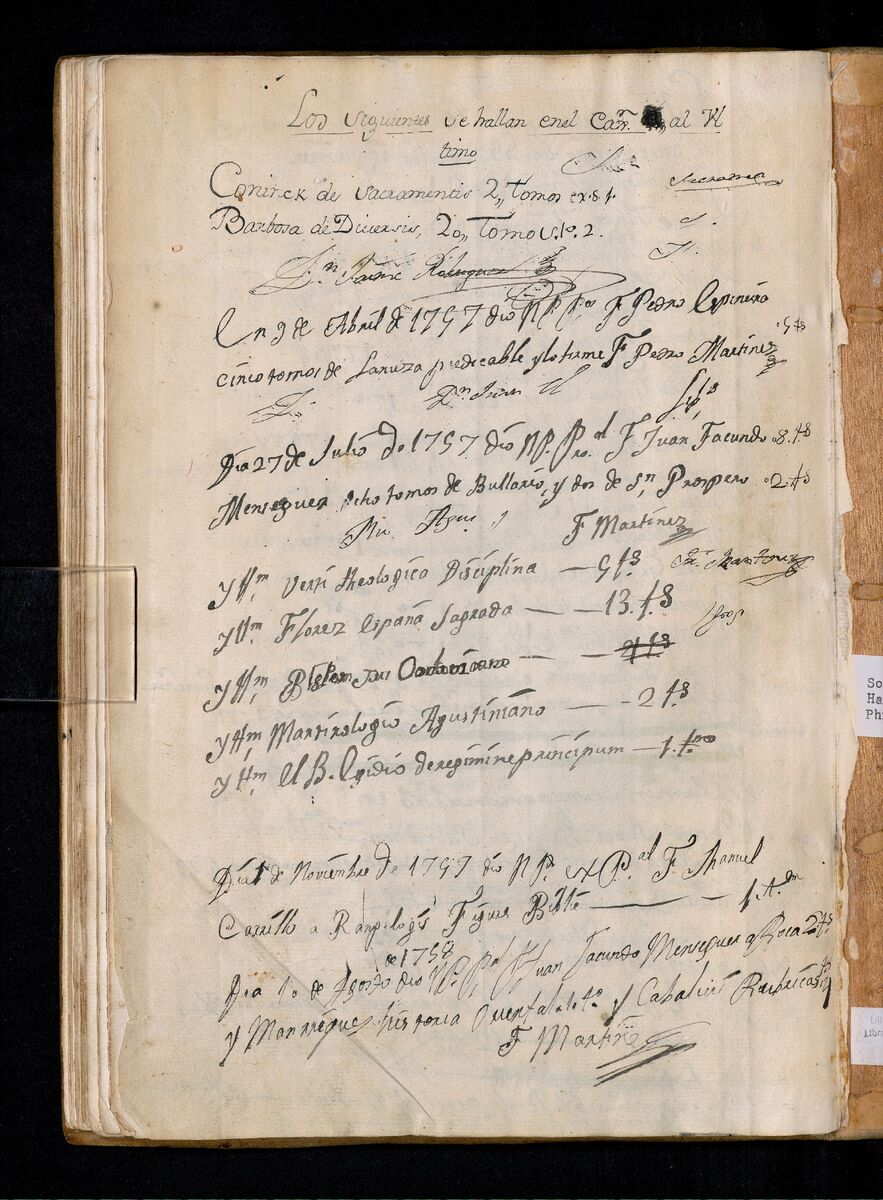 Los siguientes se hallan en el Can.n al Vl
timo
Coninck de Sacramentis 2,, Tomos ex. 8 f.
Sacramen
Barbosa de Diversis, 2o,, Tomo
D.n Jaime Rodriguez
En 9 de Abril de 1757 dio N. P. F. Pedro Espineira
cinco tomos de Lanuza predicable y lo firme F Pedro Martinez 5 t.s
D.n Juan
Dia 27 de Julio de 1757 dio N. P. Pro.al F Juan Facundo 8. t.s
Menseguer ocho tomos de Bullario, y dos de S.n Prospero 2 t.s
F Martinez
y Ytt.m Verti theologico Disciplina — 5 t.s
y Ytt.m Florez España Sagrada — 13. t.s
y Ytt.m
y Ytt.m Martirologio Agustiniano — 2 t.s
y Ytt.m El B. Egidio de regimine principum — 1. t.mo
Dia 1 de Noviembre de 1757 dio N. P. ex P.al F. Manuel
Carrillo a Rampelogis Figure Bible — 1 t.
de 1758
Dia 1o de Agosto dio N. P. P.al F Juan Facundo Menseguer a Roca 2 t.s
y Manrriques historia Orientala 1. to y Cabalieri Rubricas
F Martinez